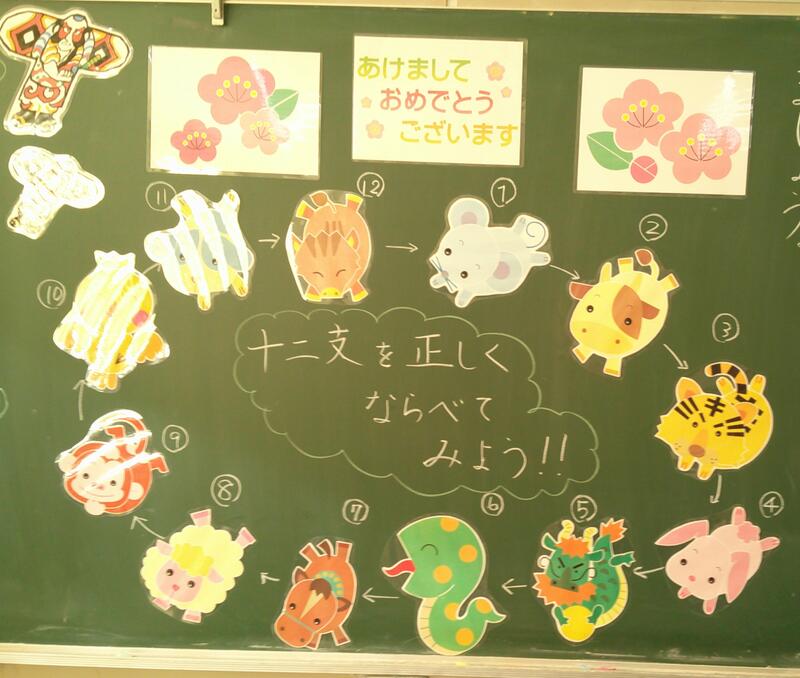 あけまして
おめでとう
ございます
⑪
⑫
①
②
⑩
③
十二支を正しく
ならべて
みよう!!
⑨
⑧
⑦
⑥
⑤
④